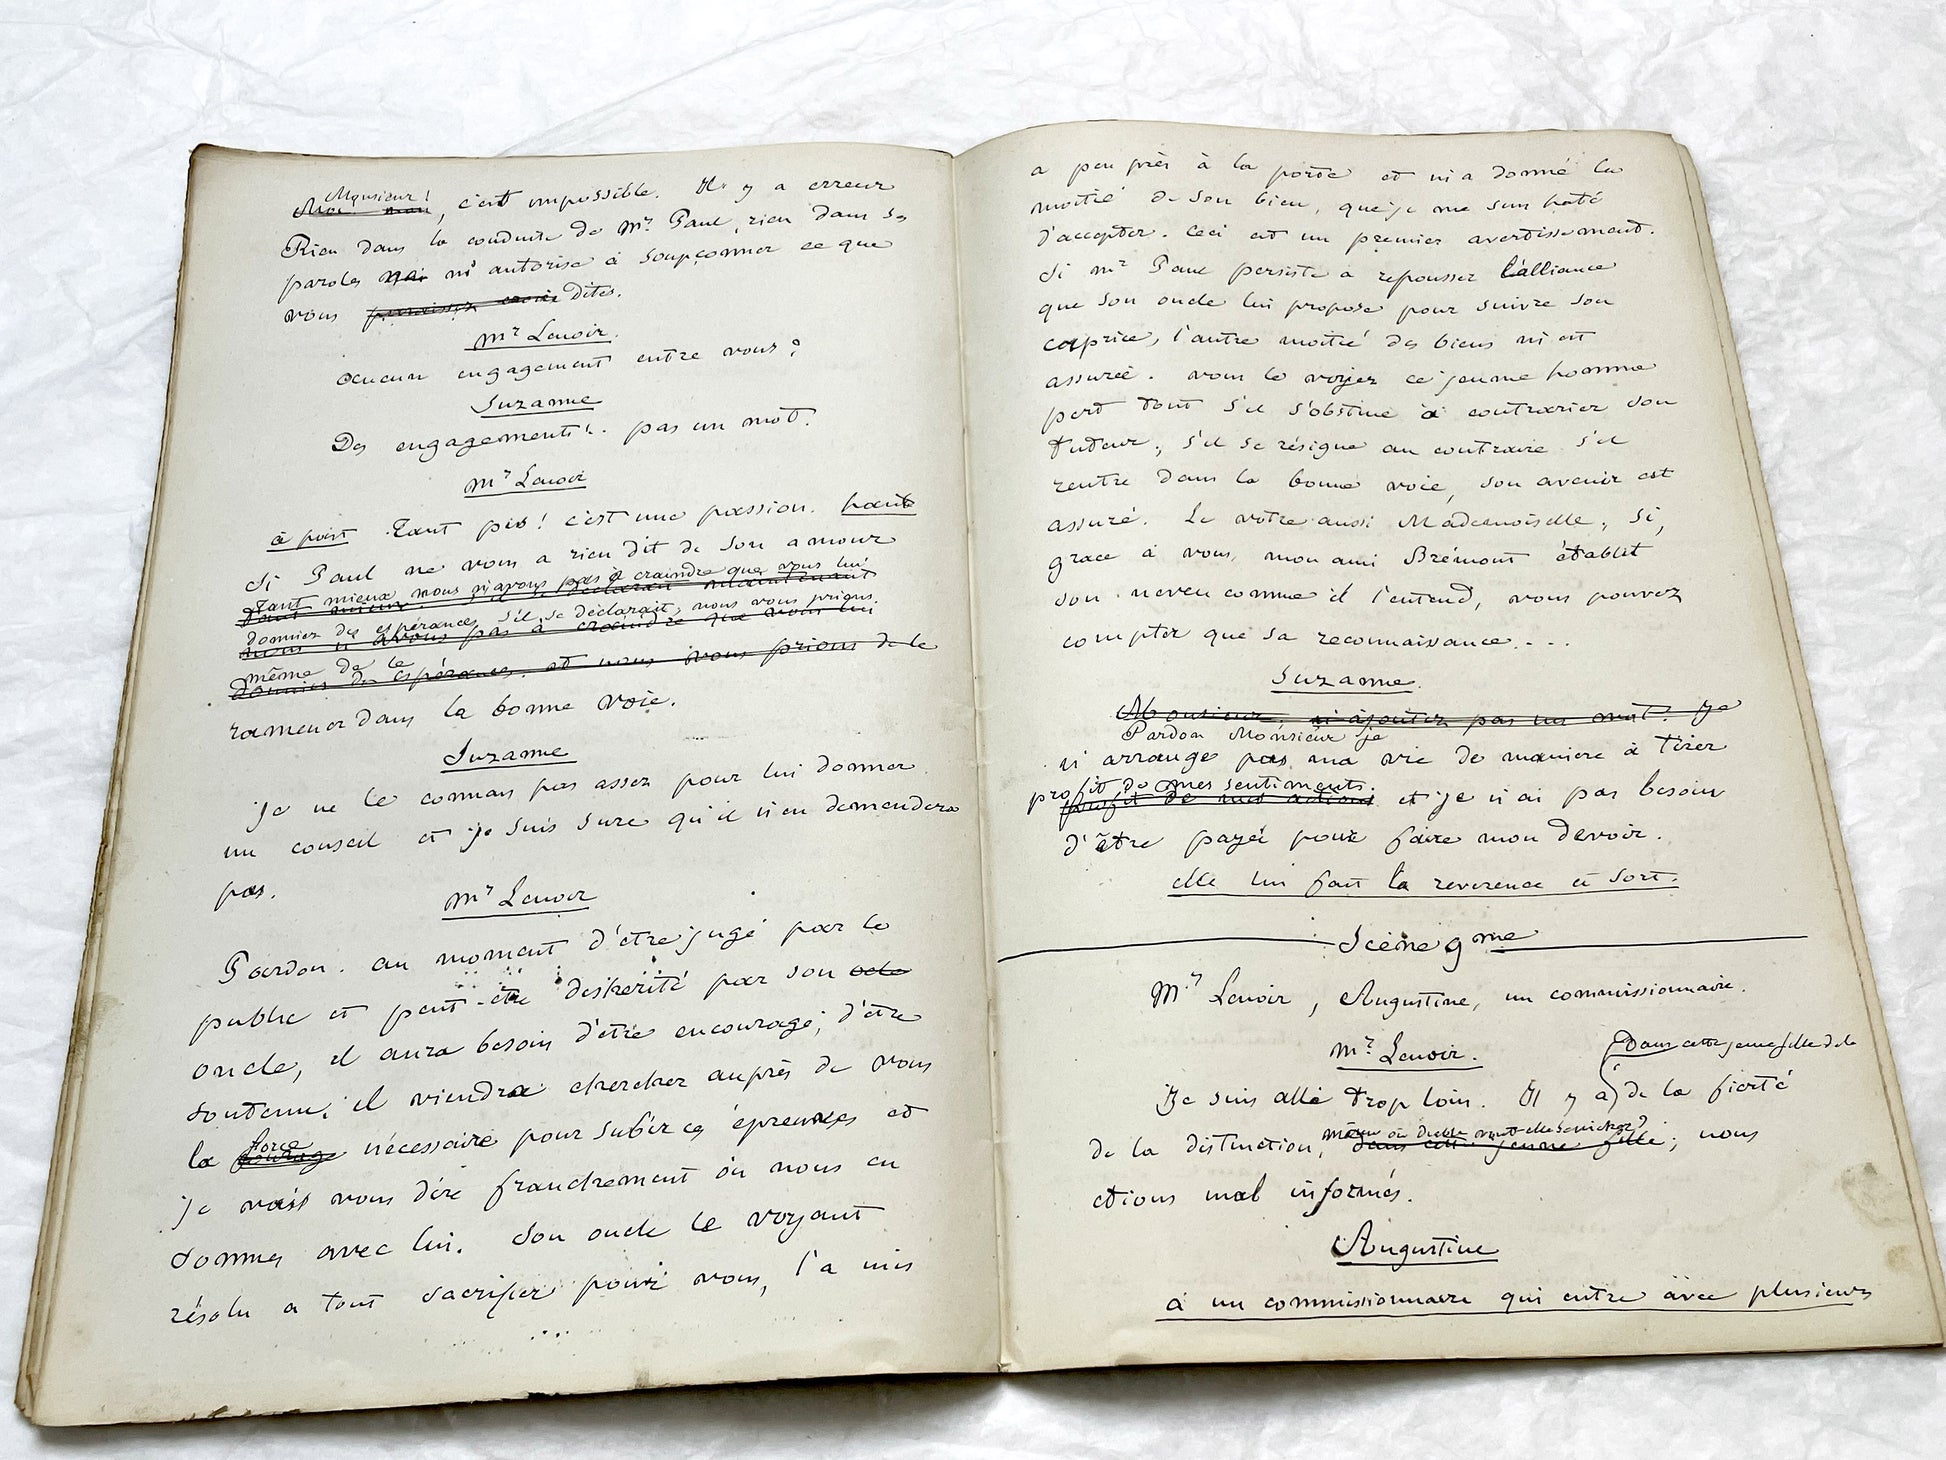 Monsieur!
Moi! non, c'est impossible. Il y a erreur
Rien dans la conduite de Mr Paul, rien dans ses
paroles ne m'autorise à soupçonner ce que
vous paraissez croire dites.
Mr Lenoir.
aucun engagement entre vous?
Suzanne
Des engagements! pas un mot.
Mr Lenoir
à part Tant pis! c'est une passion. haut
Si Paul ne vous a rien dit de son amour
Tant mieux nous n'avons pas à craindre que vous lui
Tant mieux maintenant
donniez des espérances s'il se déclarait, nous vous prions
nous n'avons pas à craindre que vous lui
même de le
donniez des espérances. et nous vous prions de le
ramener dans la bonne voie.
Suzanne
Je ne le connais pas assez pour lui donner
un conseil et je suis sure qu'il n'en demandera
pas.
Mr Lenoir
Pardon. au moment d'être jugé par le
public et peut-être desherité par son
oncle, il aura besoin d'être encouragé, d'être
soutenu; il viendra chercher auprès de vous
force
la courage nécessaire pour subir ces épreuves et
je vais vous dire franchement où nous en
sommes avec lui. Son oncle le voyant
résolu a tout sacrifier pour vous, l'a mis
a peu près à la porte et m'a donné la
moitié de son bien, que je me suis haté
d'accepter. Ceci est un premier avertissement.
Si mr Paul persiste a repousser l'alliance
que son oncle lui propose pour suivre son
caprice, l'autre moitié des biens m'est
assurée. vous le voyez ce jeune homme
perd tout s'il s'obstine à contrarier son
tuteur; s'il se résigne au contraire s'il
rentre dans la bonne voie, son avenir est
assuré. Le votre aussi Mademoiselle, si,
grace à vous, mon ami Brémont établit
son neveu comme il l'entend, vous pouvez
compter que sa reconnaissance....
Suzanne.
Monsieur, n'ajoutez pas un mot. Je
Pardon Monsieur je
n'arrange pas ma vie de manière à tirer
profit de mes sentiments.
profit de mes actions et je n'ai pas besoin
d'être payée pour faire mon devoir.
elle lui fait la reverence et sort.
Scène 9me
Mr Lenoir, Augustine, un commissionnaire.
Mr Lenoir.
dans cette jeune fille de la
Je suis allé trop loin. Il y a de la fierté
où diable va-t-elle se nicher?
de la distinction, dans cette jeune fille; nous
étions mal informés.
Augustine
à un commissionnaire qui entre avec plusieurs